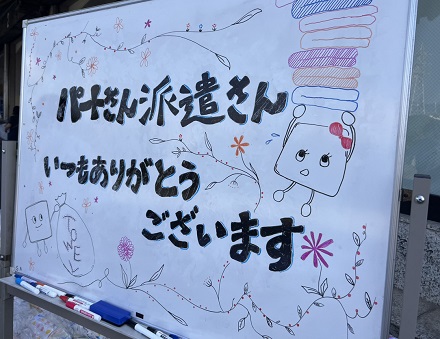 パートさん派遣さん
いつもありがとう
ございます
TOWEL